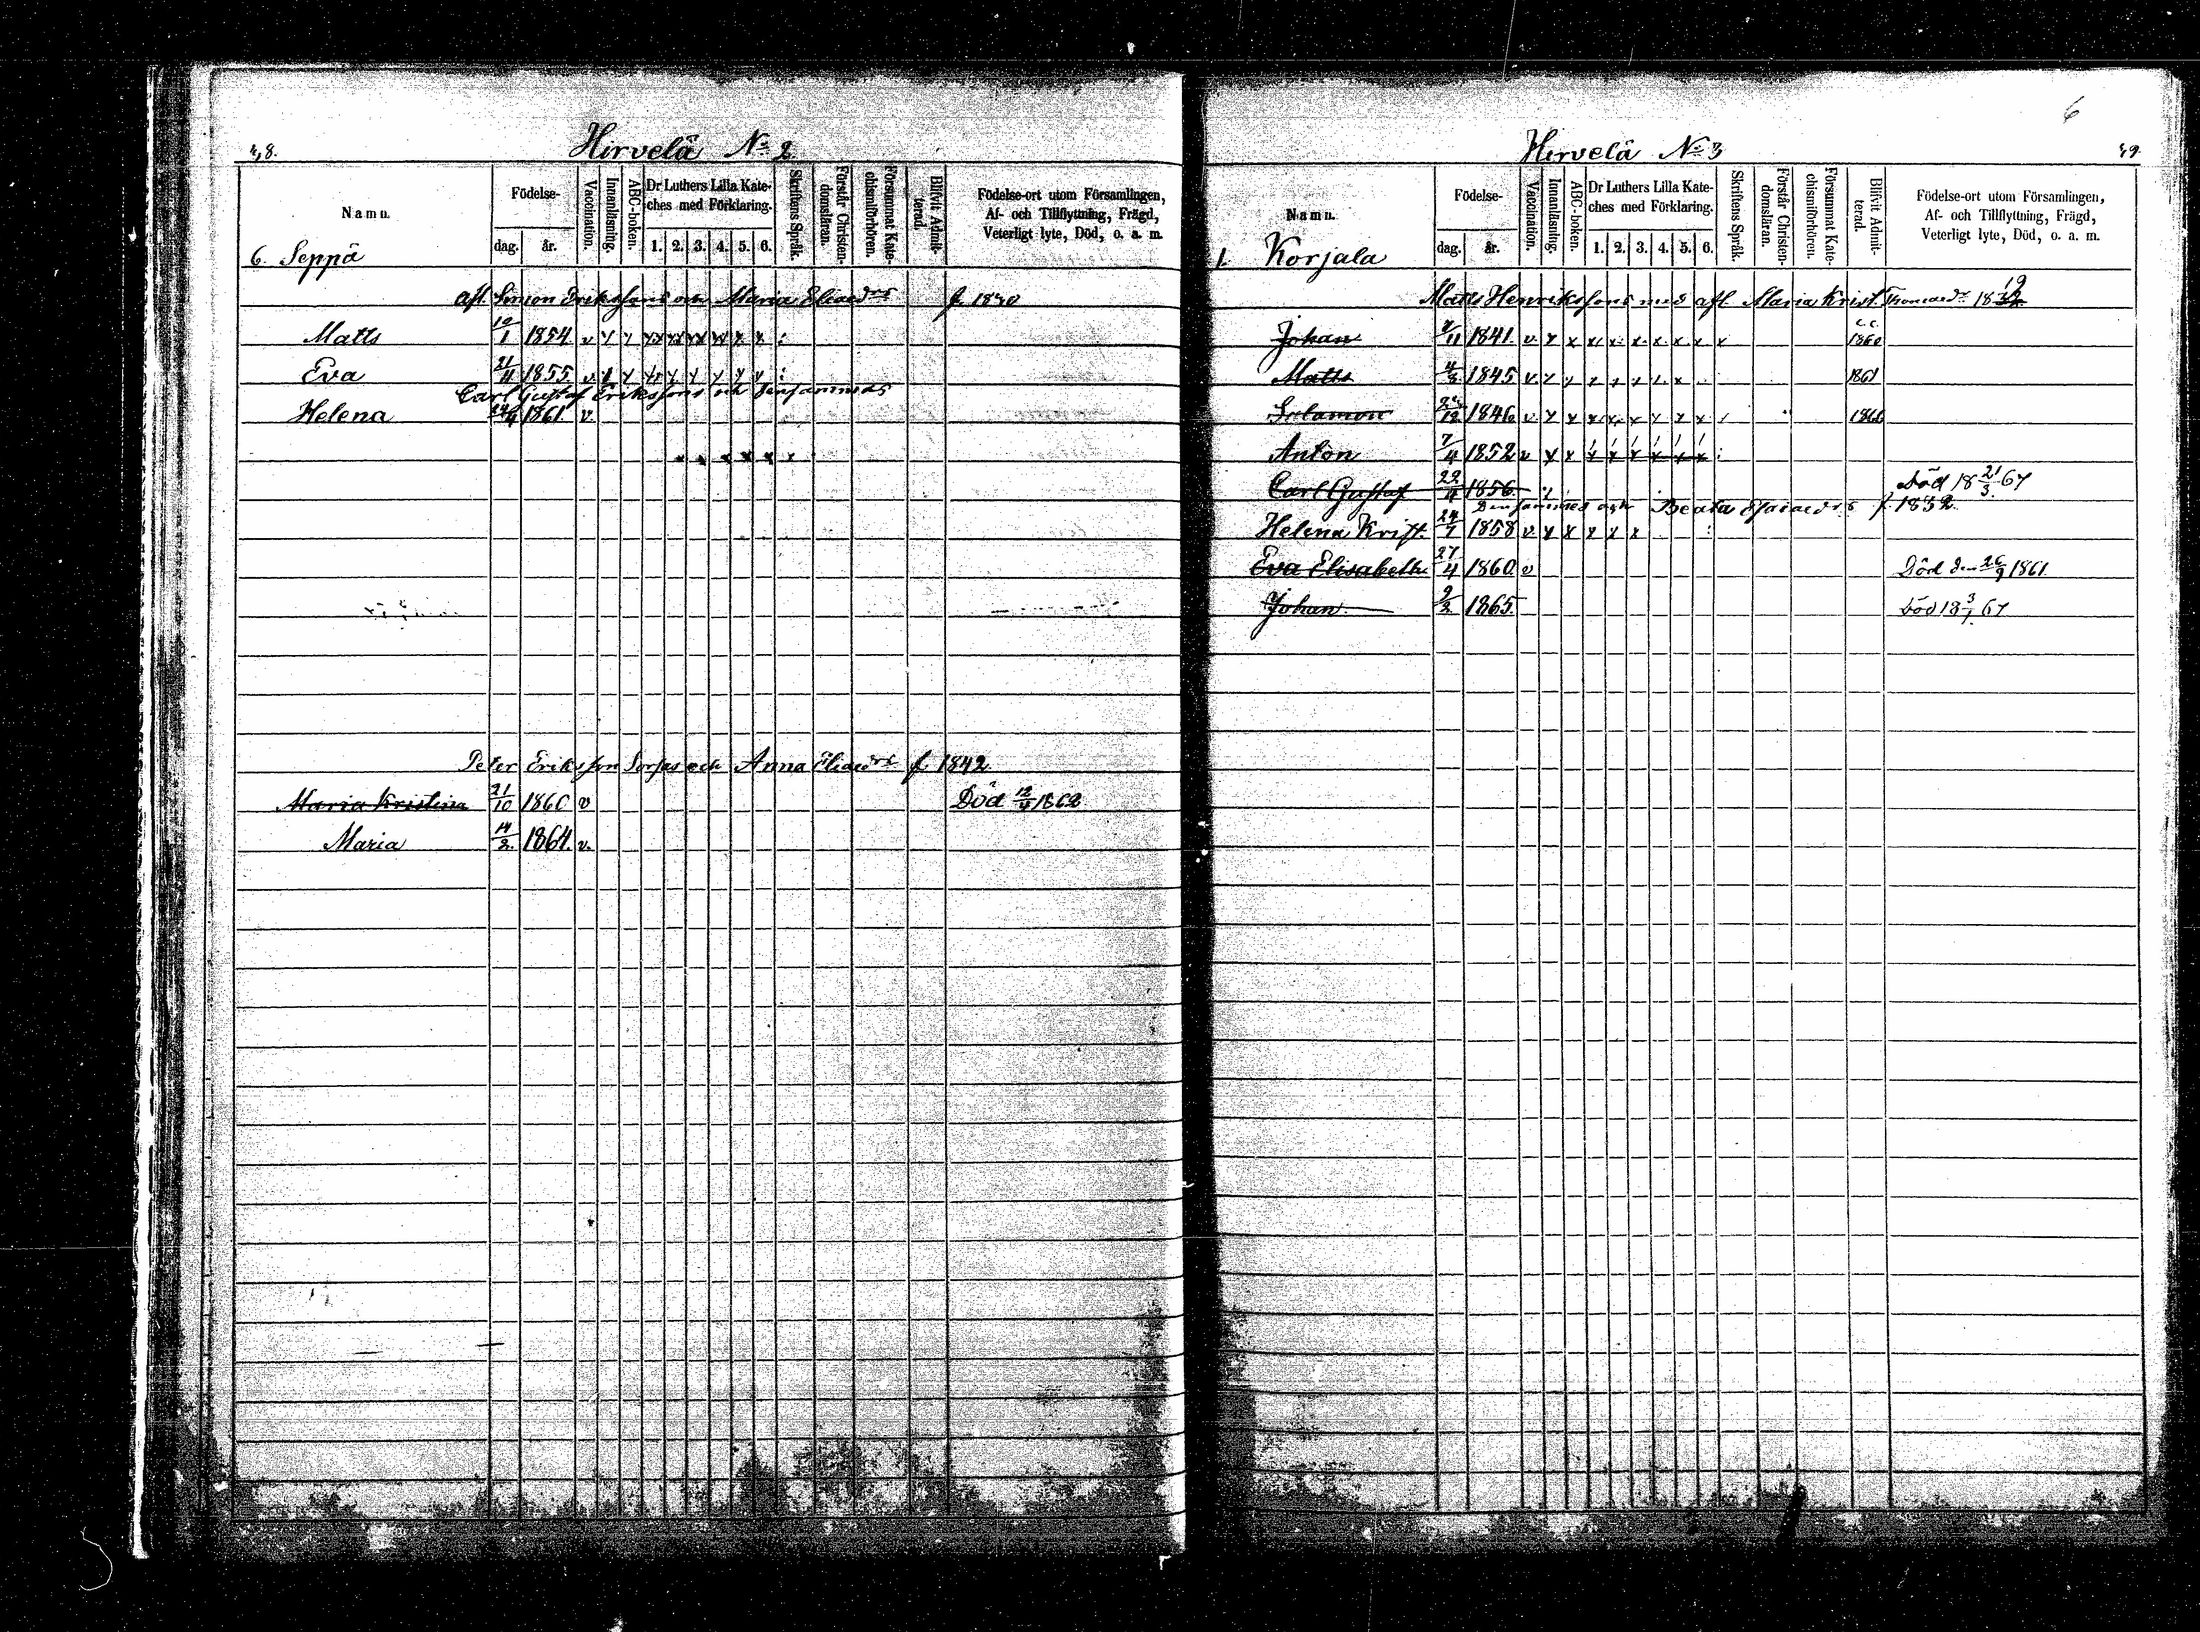 48.
Hirvelä No 2
Namn.
Födelse-
dag.
år.
Vaccination.
Innanläsning.
ABC-boken.
Dr Luthers Lilla Kate-
ches med Förklaring.
1. 2. 3. 4. 5. 6.
Skriftens Språk.
Förstår Christen-
domsläran.
Försummat Kate-
chismiförhören.
Blifvit Admit-
terad.
Födelse-ort utom Församlingen,
Af- och Tillflyttning, Frägd,
Veterligt lyte, Död, o. a. m.
6. Seppä
afl. Simon Erikssons och Maria Eliaedrs f. 1830
Matts 19/1 1854 v
Eva 21/11 1855 v
Carl Gustaf Erikssons och densammas
Helena 1861 v.
Peter Eriksson Sorsas och Anna Eliaedrs f. 1842
Maria Kristina 21/10 1860 v Död 12/4 1862
Maria 14/2. 1864. v.
6
Hirvelä No 3
49.
Namn.
Födelse-
dag.
år.
Vaccination.
Innanläsning.
ABC-boken.
Dr Luthers Lilla Kate-
ches med Förklaring.
1. 2. 3. 4. 5. 6.
Skriftens Språk.
Förstår Christen-
domsläran.
Försummat Kate-
chismiförhören.
Blifvit Admit-
terad.
Födelse-ort utom Församlingen,
Af- och Tillflyttning, Frägd,
Veterligt lyte, Död, o. a. m.
1. Korjala
Matts Henrikssons med afl. Maria Krist. Thomaedr
Johan 7/11 1841. v. 1860
Matts 4/3 1845 v. 1861
Salamon 1846 v 1866
Anton 7/4 1852 v
Carl Gustaf 22/4 1856. Död 18 21/3. 67
Densammes och Beata Esaiaedrs f. 1832.
Helena Krist. 24/7 1858 v.
Eva Elisabeth 27/4 1860. v Död den 26/9 1861.
Johan 9/2 1865. Död 18 3/1. 67